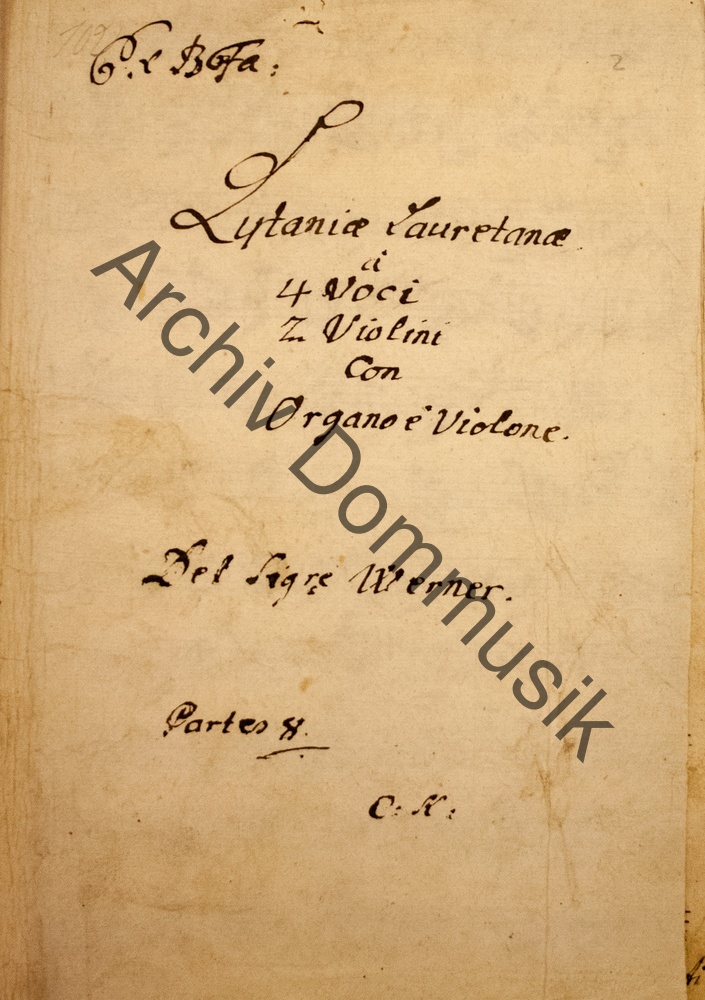 Ex B Fa:
2
Lytaniæ Lauretanæ
à
4 Voci
2 Violini
Con
Organo è Violone.
Del Sigre Werner.
Partes 8.
C: K:
Archiv Dommusik